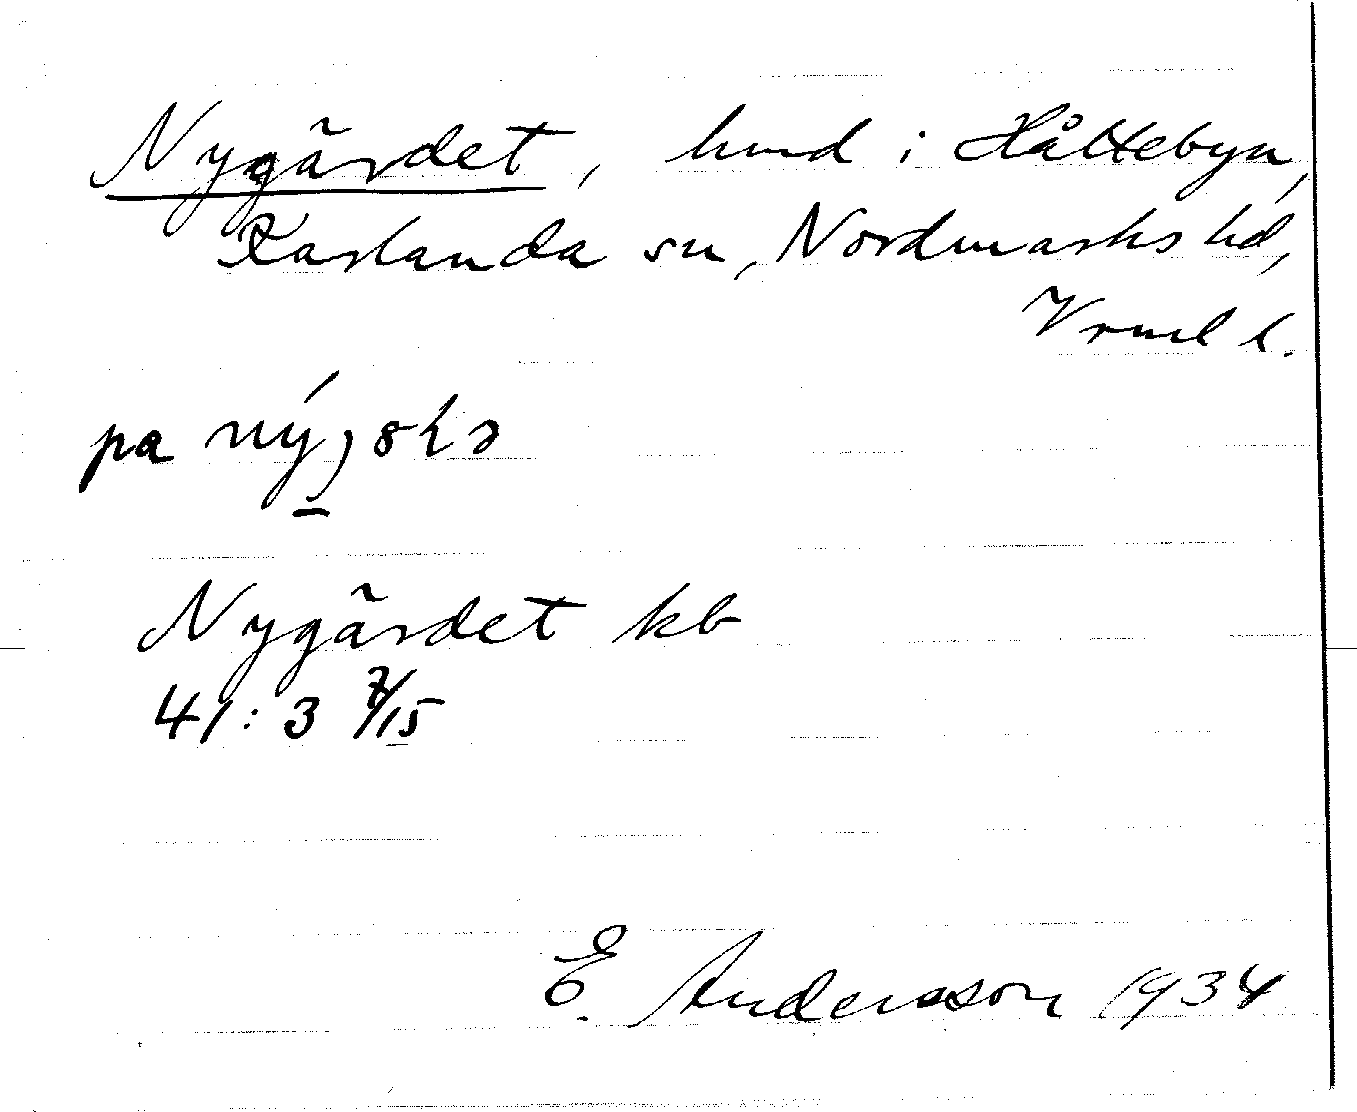 Nygärdet, hmd i Håltebyn,
Karlanda sn, Nordmarks hd,
Vrml l.
pa
Nygärdet kb
41:3 7/15
E. Andersson 1934